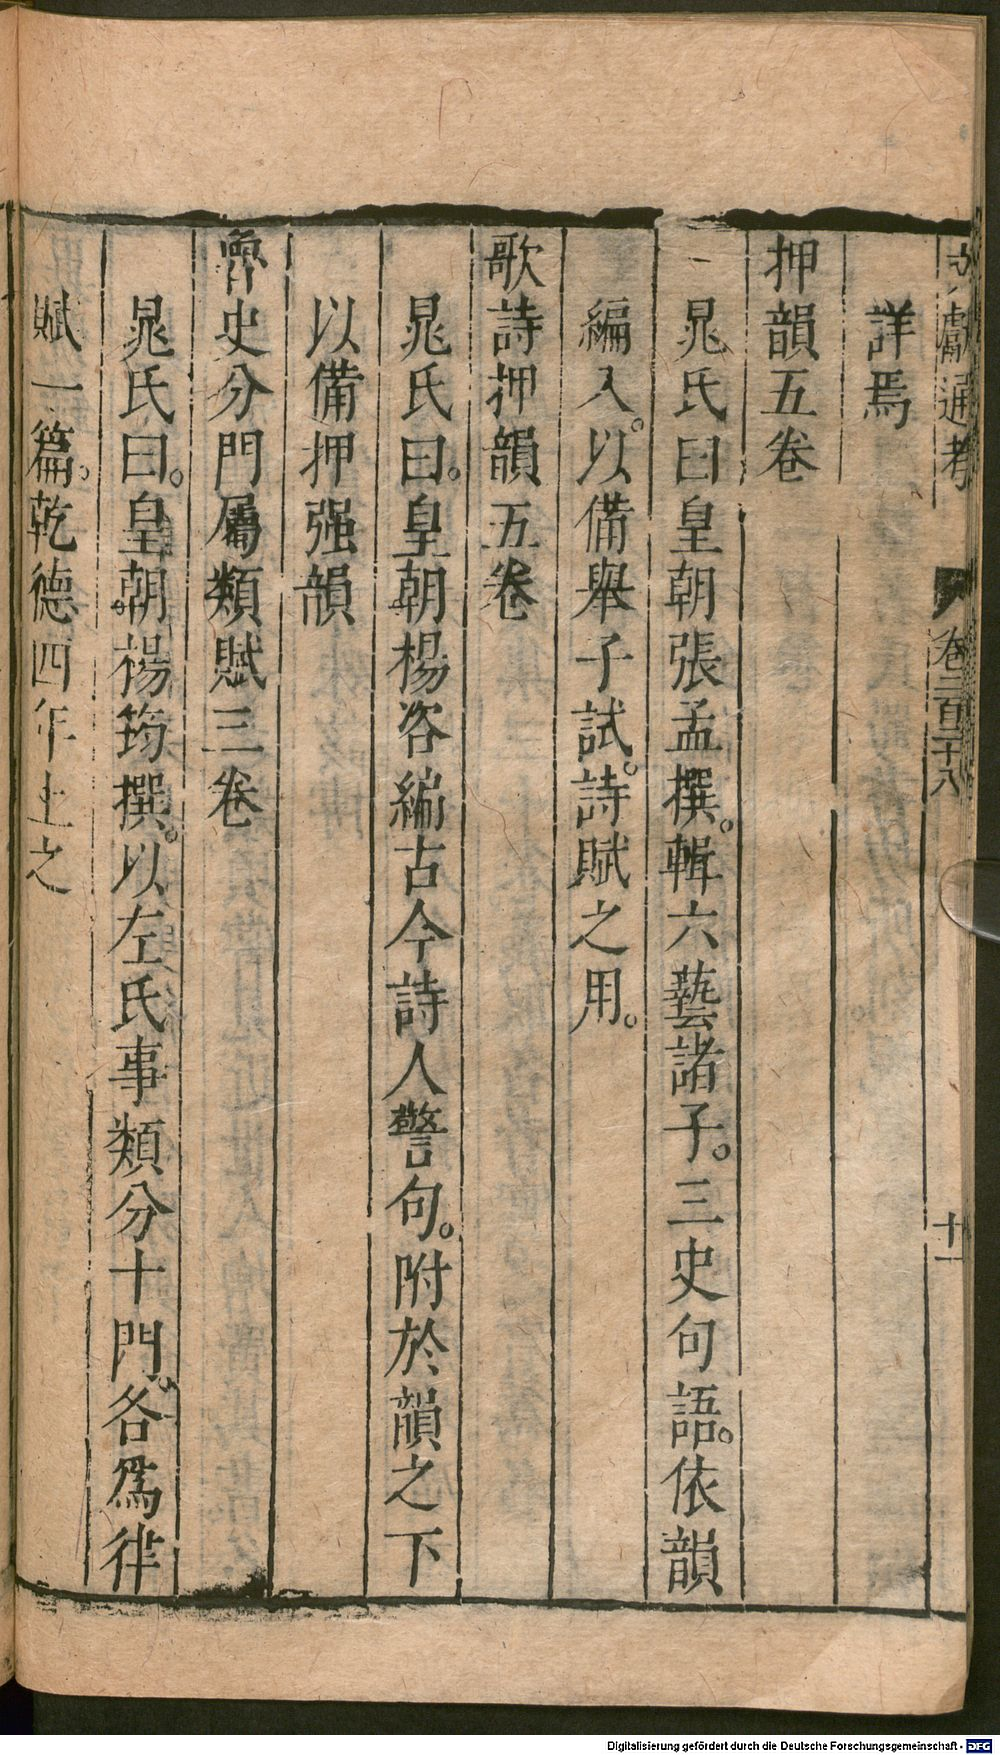 文獻通考 卷二百二十八 十一
詳焉
押韻五卷
晁氏曰皇朝張孟撰。輯六藝諸子。三史句語。依韻
編入。以備舉子試。詩賦之用。
歌詩押韻五卷
晁氏曰。皇朝楊咨編古今詩人警句。附於韻之下
以備押强韻
魯史分門屬類賦三卷
晁氏曰。皇朝。楊筠撰。以左氏事類分十門。各爲律
賦一篇。乾德四年上之
Digitalisierung gefördert durch die Deutsche Forschungsgemeinschaft - DFG